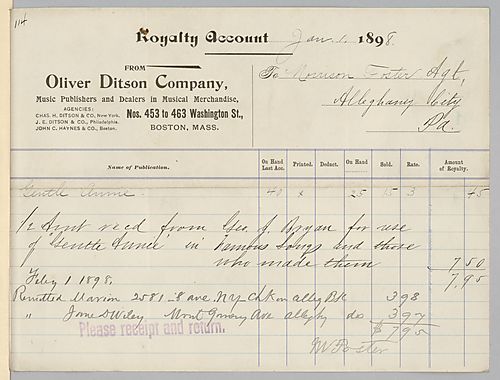 114
Royalty Account Jan. 1. 1898.
FROM
Oliver Ditson Company,
Music Publishers and Dealers in Musical Merchandise,
AGENCIES:
CHAS. H. DITSON & CO., New York.
J. E. DITSON & CO., Philadelphia.
JOHN C. HAYNES & CO., Boston.
Nos. 453 to 463 Washington St.,
BOSTON, MASS.
To Morrison Foster Agt,
Alleghany City
Pa.
Name of Publication. On Hand Last Acc. Printed. Deduct. On Hand Sold. Rate. Amount of Royalty.
Gentle Annie. 40 x 25 15 3 45
1/2 Amt rec'd from Geo. J. Bryan for use
of "Gentle Annie" in Famous Songs and those
who made them 7.50
7.95
Feby 1 1898.
Remitted Marion 2581-8 ave. NY Ck on Alleg Bk 398
" Jane D Wiley Montgomery Ave Alleghy do 397
$795
Please receipt and return.
M Foster